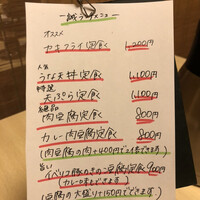 誠ランチメニュー
オススメ
カキフライ定食 1,200円
人気
うな天丼定食 1,100円
特選
天ぷら定食 1,100円
絶品
肉豆腐定食 800円
カレー肉豆腐定食 800円
(肉豆腐の肉+400円で2倍できます)
旨い
イベリコ豚カキのニ豆腐定食 900円
(カレー味もできます)
(豆腐の大盛り+150円でできます)